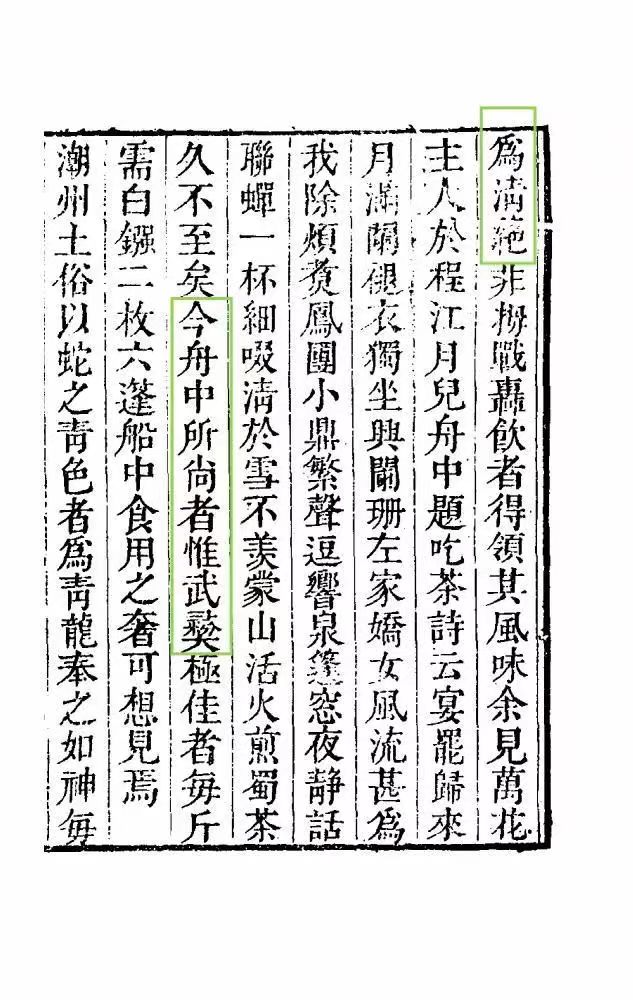 爲清絕非拇戰轟飲者得領其風味余見萬花
主人於程江月兒舟中題吃茶詩云宴罷歸來
月滿闌褪衣獨坐興闌珊左家嬌女風流甚爲
我除煩煑鳳團小鼎繁聲逗響泉篷窓夜靜話
聯蟬一杯細啜清於雪不羨蒙山活火煎蜀茶
久不至矣今舟中所尚者惟武彝極佳者每斤
需白鏹二枚六篷船中食用之奢可想見焉
潮州土俗以蛇之靑色者爲靑龍奉之如神每